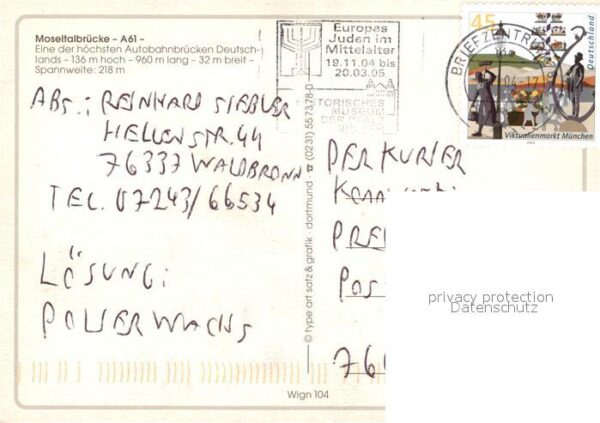 Moseltalbrücke – A61 –
Eine der höchsten Autobahnbrücken Deutsch-
lands – 136 m hoch – 960 m lang – 32 m breit –
Spannweite: 218 m
Europas
Juden im
Mittelalter
19.11.04 bis
20.03.05
TORISCHES
MUSEUM
DER PFALZ
45
Deutschland
Viktualienmarkt München
BRIEFZENTRUM
ABS.: REINHARD SIEBLER
HELLENSTR. 44
76337 WALDBRONN
TEL. 07243/66534
LÖSUNG:
POWERWACHS
© type art satz & grafik · dortmund ☎ (0231) 557378-0
DER KURIER
PRE
POS
76
privacy protection
Datenschutz
Wign 104